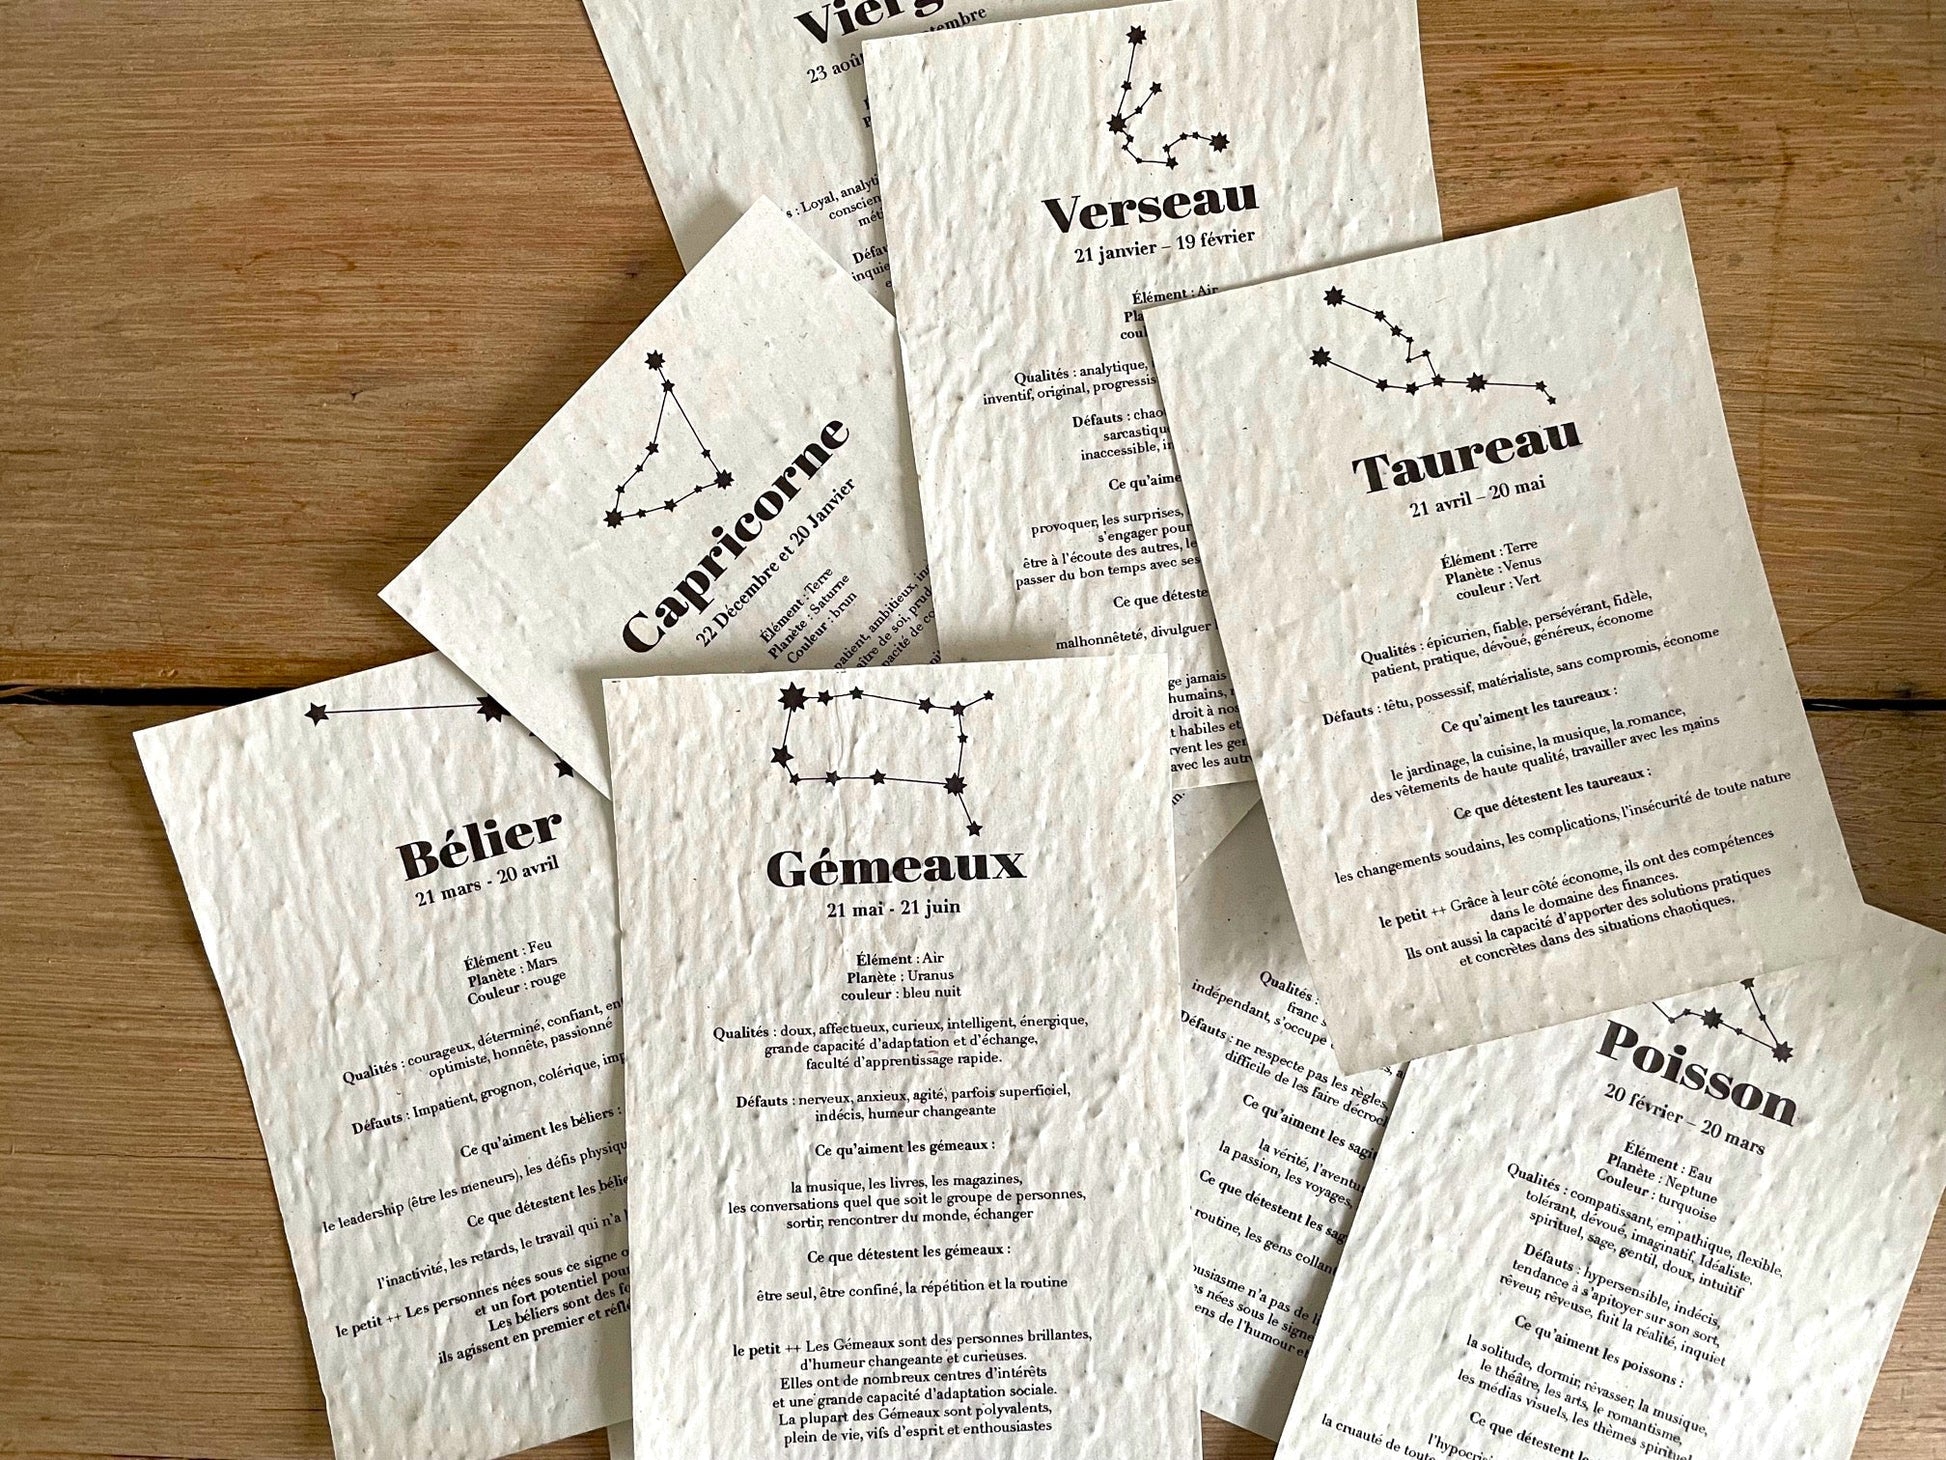 23 août
Loyal, analyti
conscien
Défau
Verseau
21 janvier – 19 février
Élément : Air
Qualités : analytique,
inventif, original, progressis
Défauts : chao
sarcastiqu
inaccessible, in
Ce qu'aime
provoquer, les surprises,
s'engager pour
être à l'écoute des autres, le
passer du bon temps avec ses
Ce que déteste
malhonnêteté, divulguer
ge jamais
humains,
droit à nos
t habiles et
rvent les gen
avec les autr
Taureau
21 avril – 20 mai
Élément : Terre
Planète : Venus
couleur : Vert
Qualités : épicurien, fiable, persévérant, fidèle,
patient, pratique, dévoué, généreux, économe
Défauts : têtu, possessif, matérialiste, sans compromis, économe
Ce qu'aiment les taureaux :
le jardinage, la cuisine, la musique, la romance,
des vêtements de haute qualité, travailler avec les mains
Ce que détestent les taureaux :
les changements soudains, les complications, l'insécurité de toute nature
le petit ++ Grâce à leur côté économe, ils ont des compétences
dans le domaine des finances.
Ils ont aussi la capacité d'apporter des solutions pratiques
et concrètes dans des situations chaotiques.
Capricorne
22 Décembre et 20 Janvier
Élément : Terre
Planète : Saturne
Couleur : brun
patient, ambitieux,
maître de soi, prud
capacité de co
Bélier
21 mars - 20 avril
Élément : Feu
Planète : Mars
Couleur : rouge
Qualités : courageux, déterminé, confiant, en
optimiste, honnête, passionné
Défauts : Impatient, grognon, colérique, imp
Ce qu'aiment les béliers :
le leadership (être les meneurs), les défis physiqu
Ce que détestent les bélie
l'inactivité, les retards, le travail qui n'a
le petit ++ Les personnes nées sous ce signe o
et un fort potentiel pour
Les béliers sont des fo
ils agissent en premier et réflé
Gémeaux
21 mai - 21 juin
Élément : Air
Planète : Uranus
couleur : bleu nuit
Qualités : doux, affectueux, curieux, intelligent, énergique,
grande capacité d'adaptation et d'échange,
faculté d'apprentissage rapide.
Défauts : nerveux, anxieux, agité, parfois superficiel,
indécis, humeur changeante
Ce qu'aiment les gémeaux :
la musique, les livres, les magazines,
les conversations quel que soit le groupe de personnes,
sortir, rencontrer du monde, échanger
Ce que détestent les gémeaux :
être seul, être confiné, la répétition et la routine
le petit ++ Les Gémeaux sont des personnes brillantes,
d'humeur changeante et curieuses.
Elles ont de nombreux centres d'intérêts
et une grande capacité d'adaptation sociale.
La plupart des Gémeaux sont polyvalents,
plein de vie, vifs d'esprit et enthousiastes
Qualités :
franc
indépendant, s'occupe
Défauts : ne respecte pas les règles,
difficile de les faire décroc
Ce qu'aiment les sagit
la vérité, l'aventu
la passion, les voyages,
Ce que détestent les sag
routine, les gens collan
ousiasme n'a pas de li
es nées sous le signe
ens de l'humour et
Poisson
20 février – 20 mars
Élément : Eau
Planète : Neptune
Couleur : turquoise
Qualités : compatissant, empathique, flexible,
tolérant, dévoué, imaginatif, Idéaliste,
spirituel, sage, gentil, doux, intuitif
Défauts : hypersensible, indécis,
tendance à s'apitoyer sur son sort,
rêveur, rêveuse, fuit la réalité, inquiet
Ce qu'aiment les poissons :
la solitude, dormir, rêvasser, la musique,
le théâtre, les arts, le romantisme,
les médias visuels, les thèmes spirituel
Ce que détestent le
l'hypocris
la cruauté de toute